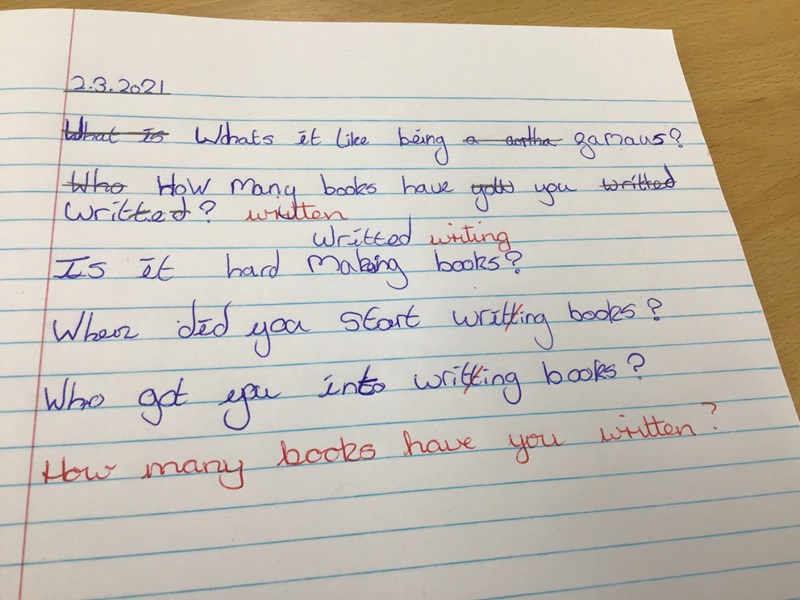 2.3.2021
What is Whats it like being a autha famous?
Who How many books have you you writted
writted? written
writted writing
Is it hard making books?
When did you start writting books?
Who got you into writting books?
How many books have you written?